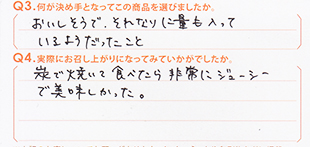 Q3.何が決め手となってこの商品を選びましたか。
おいしそうで、それなりに量も入って
いるようだったこと
Q4.実際にお召し上がりになってみていかがでしたか。
炭で焼いて食べたら非常にジューシー
で美味しかった。